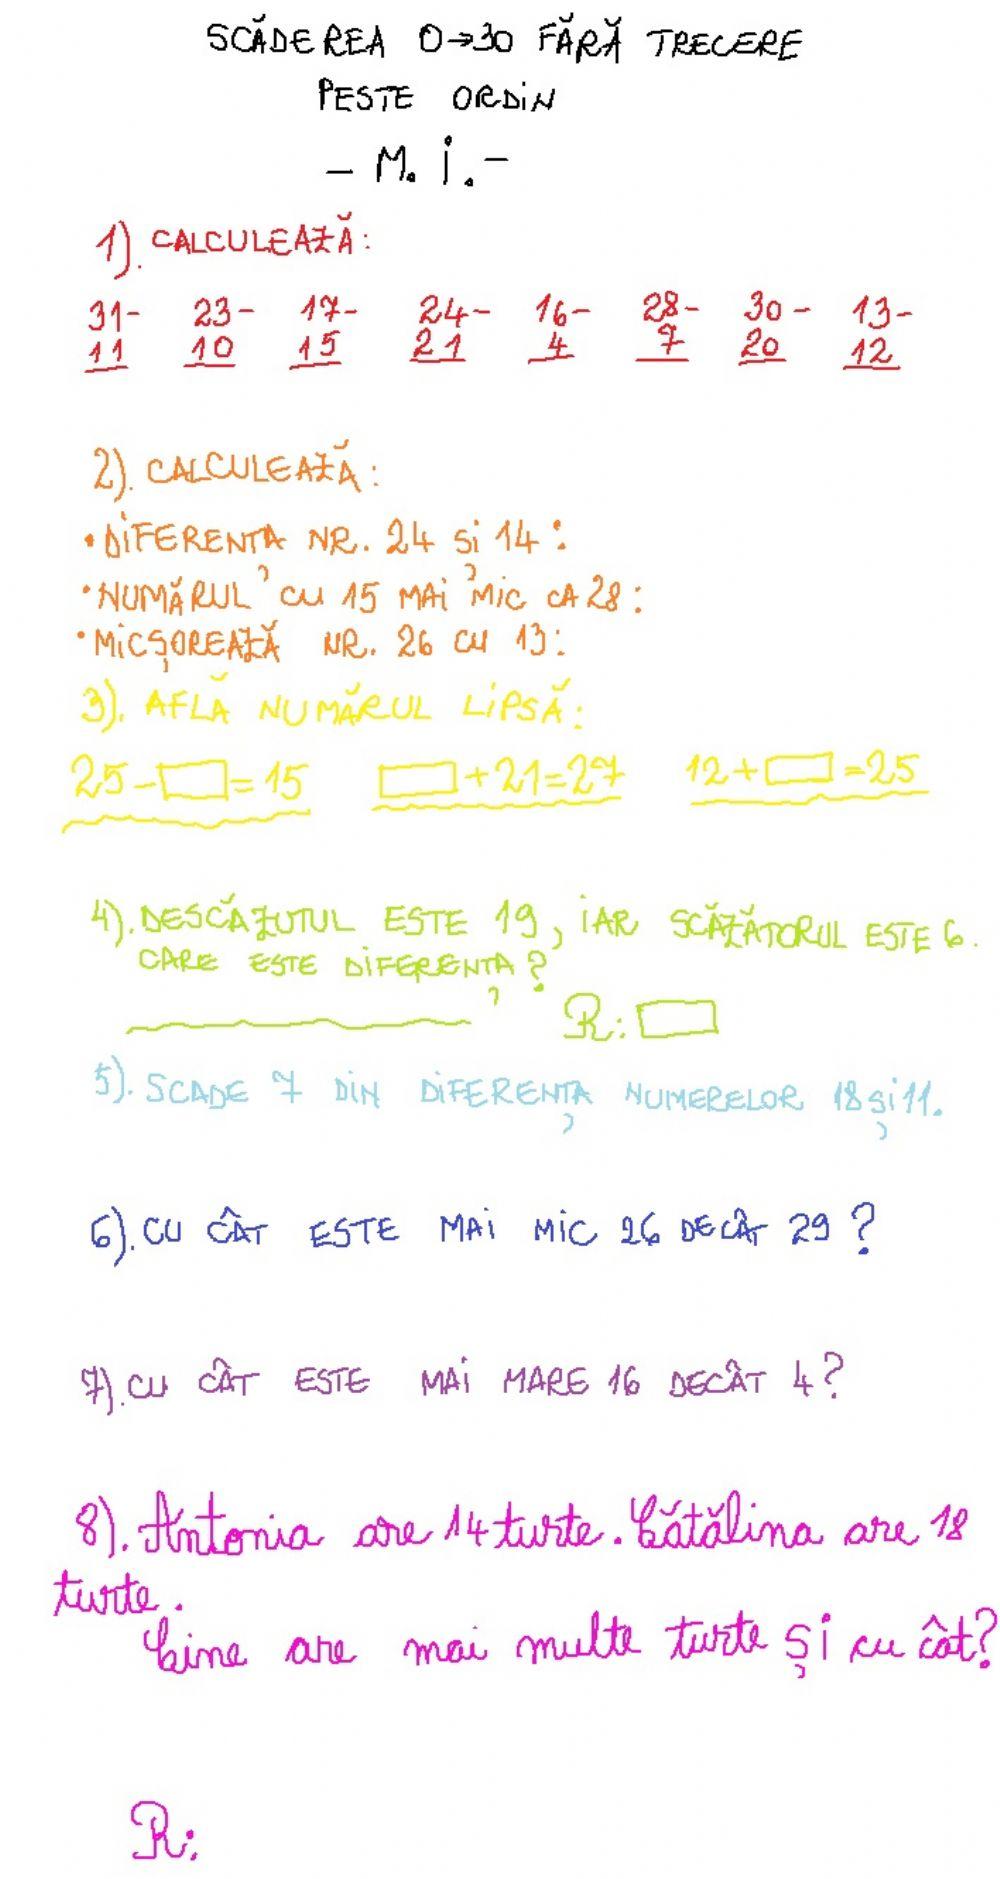 SCĂDEREA 0→30 FĂRĂ TRECERE
PESTE ORDIN
- M. i. -
1). CALCULEAZĂ:
31- 23- 17- 24- 16- 28- 30- 13-
11 10 15 21 4 7 20 12
2). CALCULEAZĂ:
• DiFERENȚA NR. 24 și 14:
• NUMĂRUL CU 15 MAi MiC CA 28:
• MiCȘOREAZĂ NR. 26 CU 13:
3). AFLĂ NUMĂRUL LiPSĂ:
25-□=15 □+21=27 12+□=25
4). DESCĂZUTUL ESTE 19, iAR SCĂZĂTORUL ESTE 6.
CARE ESTE DiFERENȚA?
R: □
5). SCADE 7 DiN DiFERENȚA NUMERELOR 18 și 11.
6). CU CÂT ESTE MAi MiC 26 DECÂT 29?
7). CU CÂT ESTE MAi MARE 16 DECÂT 4?
8). Antonia are 14 turte. Cătălina are 18
turte.
Cine are mai multe turte și cu cât?
R: